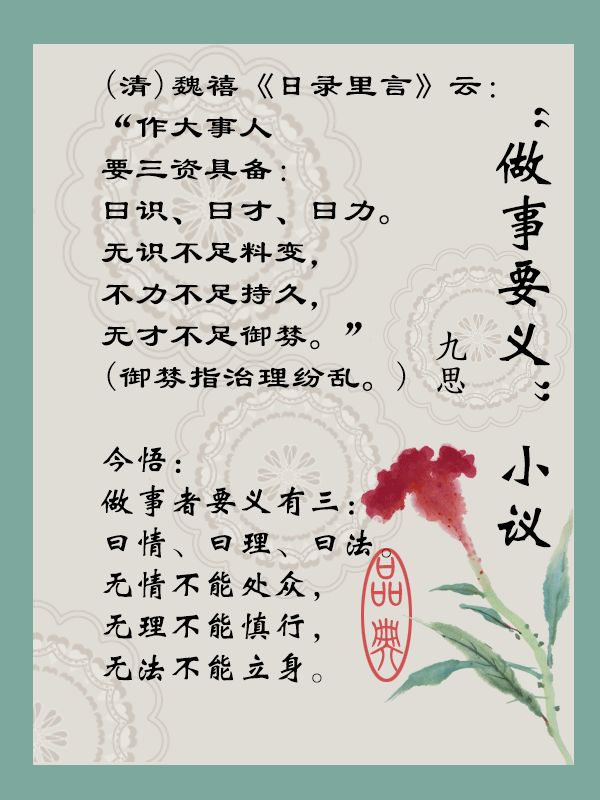 “做事要义” 小议
九思
(清)魏禧《日录里言》云：
“作大事人
要三资具备：
曰识、曰才、曰力。
无识不足料变，
不力不足持久，
无才不足御棼。”
(御棼指治理纷乱。)
今悟：
做事者要义有三：
曰情、曰理、曰法。
无情不能处众，
无理不能慎行，
无法不能立身。
品典